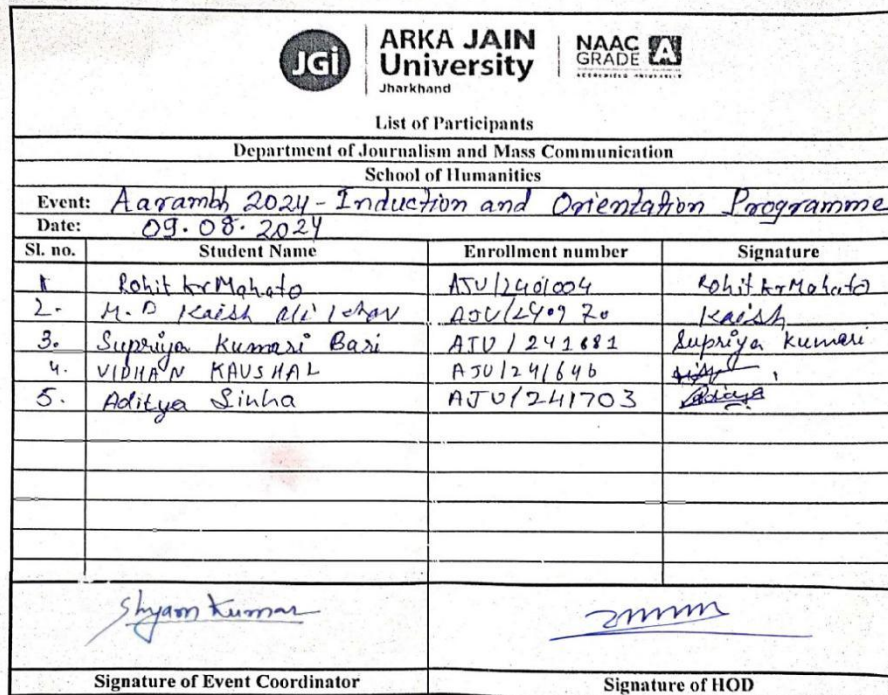 JGi
ARKA JAIN
University
Jharkhand
NAAC
GRADE A
ACCREDITED UNIVERSITY
List of Participants
Department of Journalism and Mass Communication
School of Humanities
Event: Aarambh 2024 - Induction and Orientation Programme
Date: 09.08.2024
Sl. no. Student Name Enrollment number Signature
1 Rohit kr Mahato AJU/2401004 Rohit kr Mahato
2. M.D Kaish ali Kaish
3. Supriya Kumari Bari AJU/241681 Supriya kumari
4. VIDHAN KAUSHAL AJU/241646
5. Aditya Sinha AJU/241703
Shyam Kumar
Signature of Event Coordinator Signature of HOD